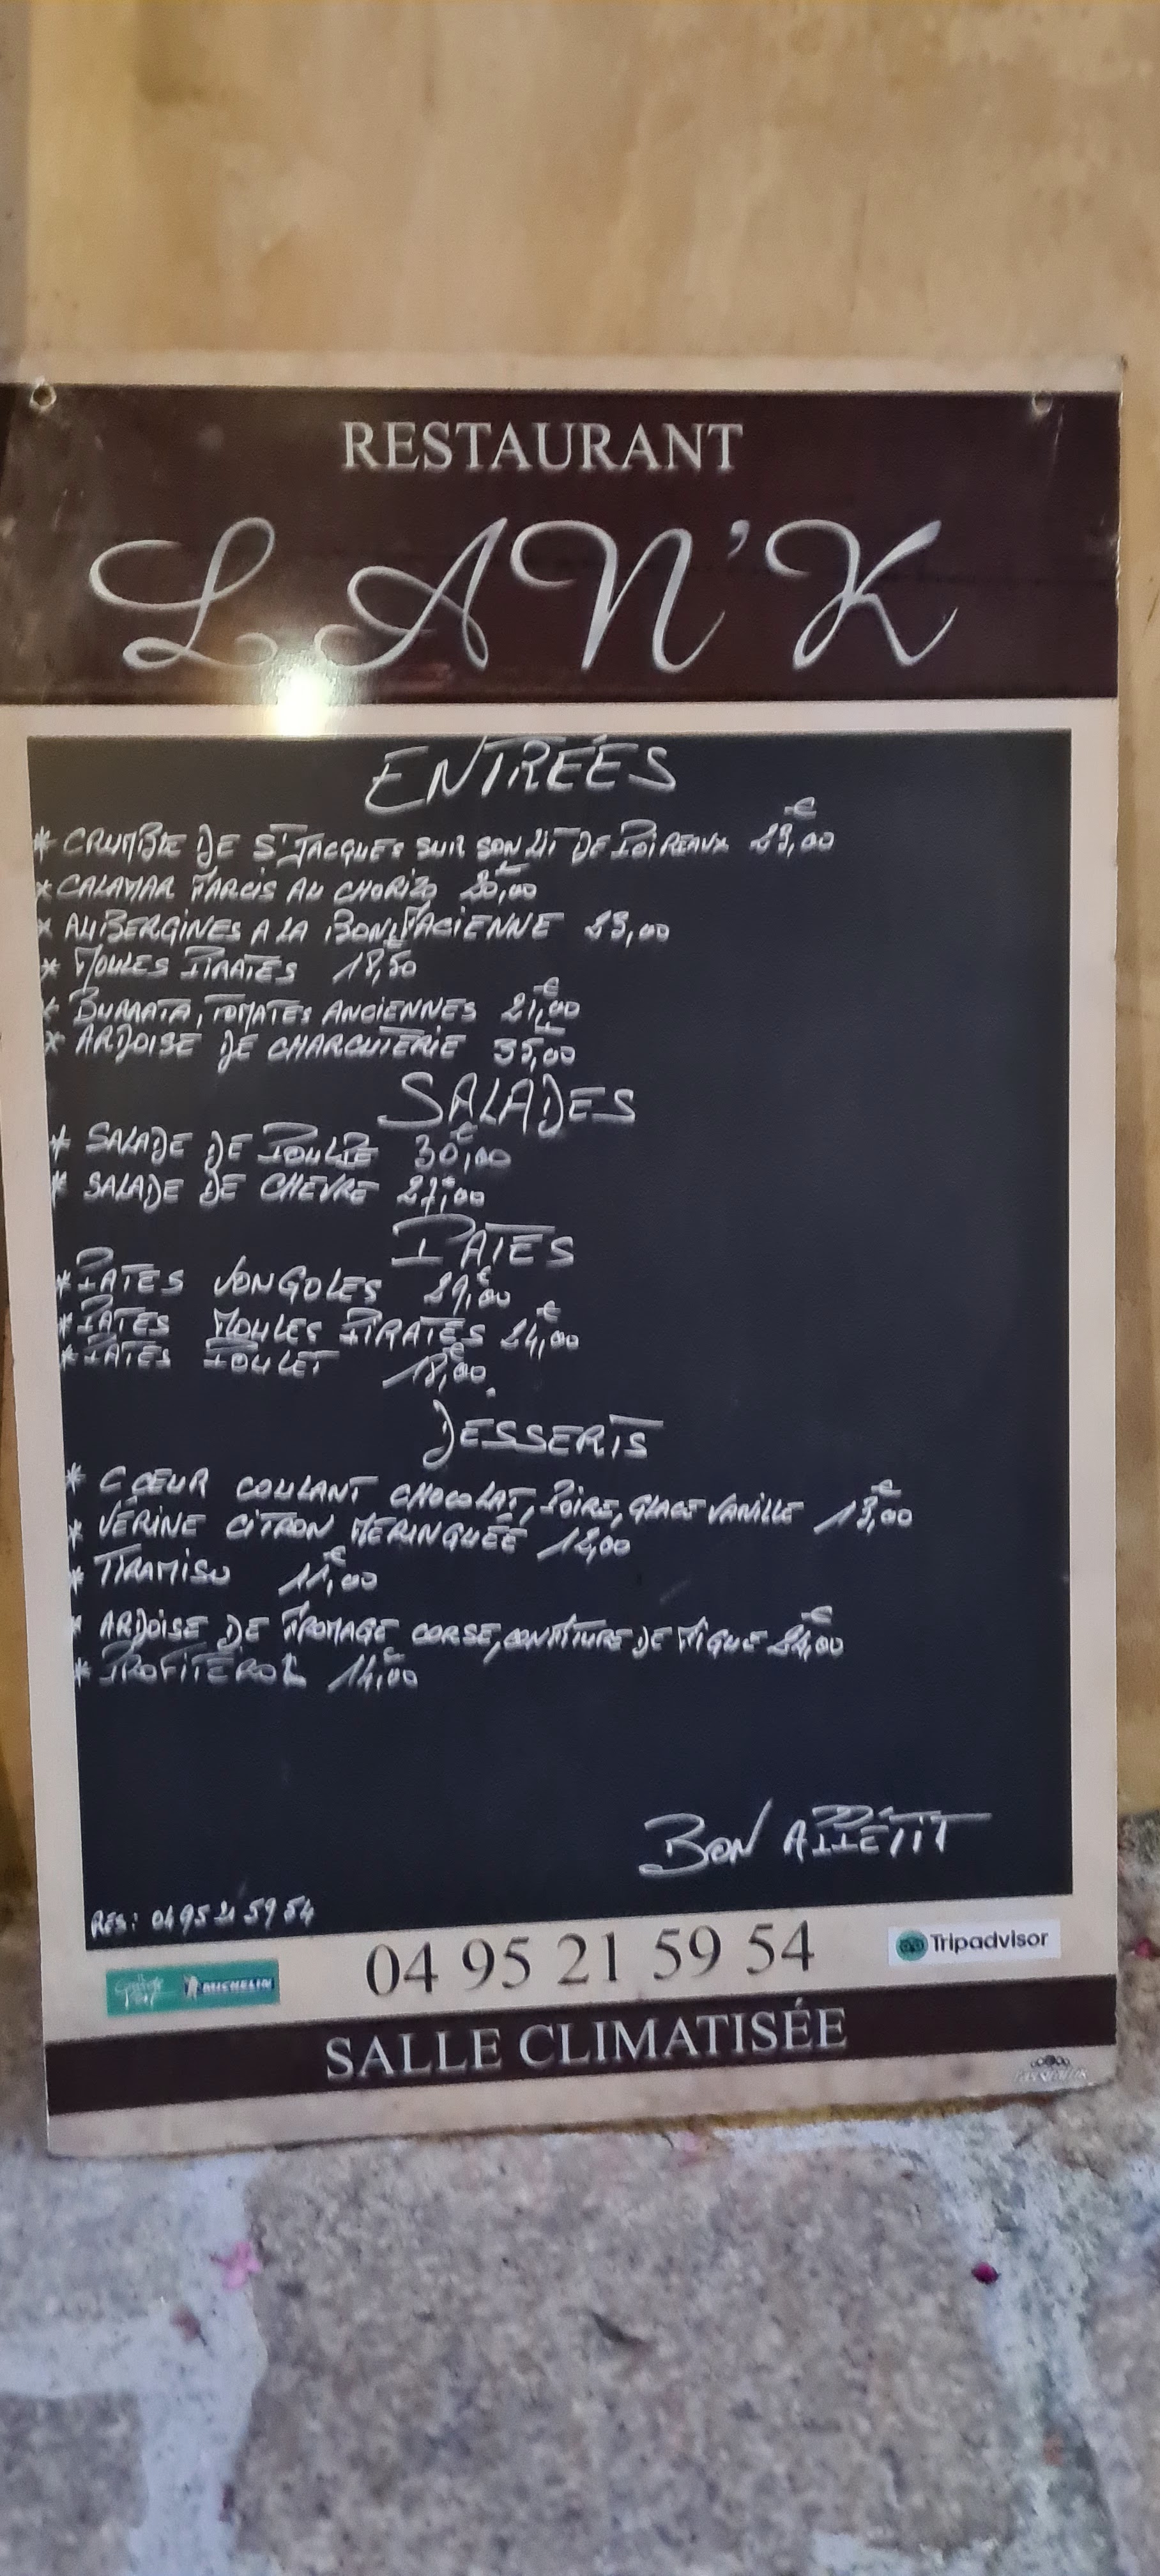 RESTAURANT
L'AN'K
ENTRÉES
* CRUMBLE DE ST JACQUES SUR SON LIT DE POIREAUX 23,00 €
* CALAMAR FARCIS AU CHORIZO 20,00 €
* AUBERGINES A LA BONIFACIENNE 23,00
* MOULES PIRATES 18,50 €
* BURRATA, TOMATES ANCIENNES 21,00 €
* ARDOISE DE CHARCUTERIE 35,00 €
SALADES
* SALADE DE POULPE 30,00 €
* SALADE DE CHEVRE 27,00 €
PATES
* PATES VONGOLES 29,00 €
* PATES MOULES PIRATES 24,00 €
* PATES POULET 18,00 €
DESSERTS
* CŒUR COULANT CHOCOLAT, POIRE, GLACE VANILLE 13,00 €
* VÉRINE CITRON MERINGUÉE 12,00
* TIRAMISU 11,00 €
* ARDOISE DE FROMAGE CORSE, CONFITURE DE FIGUE 24,00 €
* PROFITÉROL 14,00 €
BON APPÉTIT
RES: 04 95 21 59 54
04 95 21 59 54
Tripadvisor
MICHELIN
SALLE CLIMATISÉE